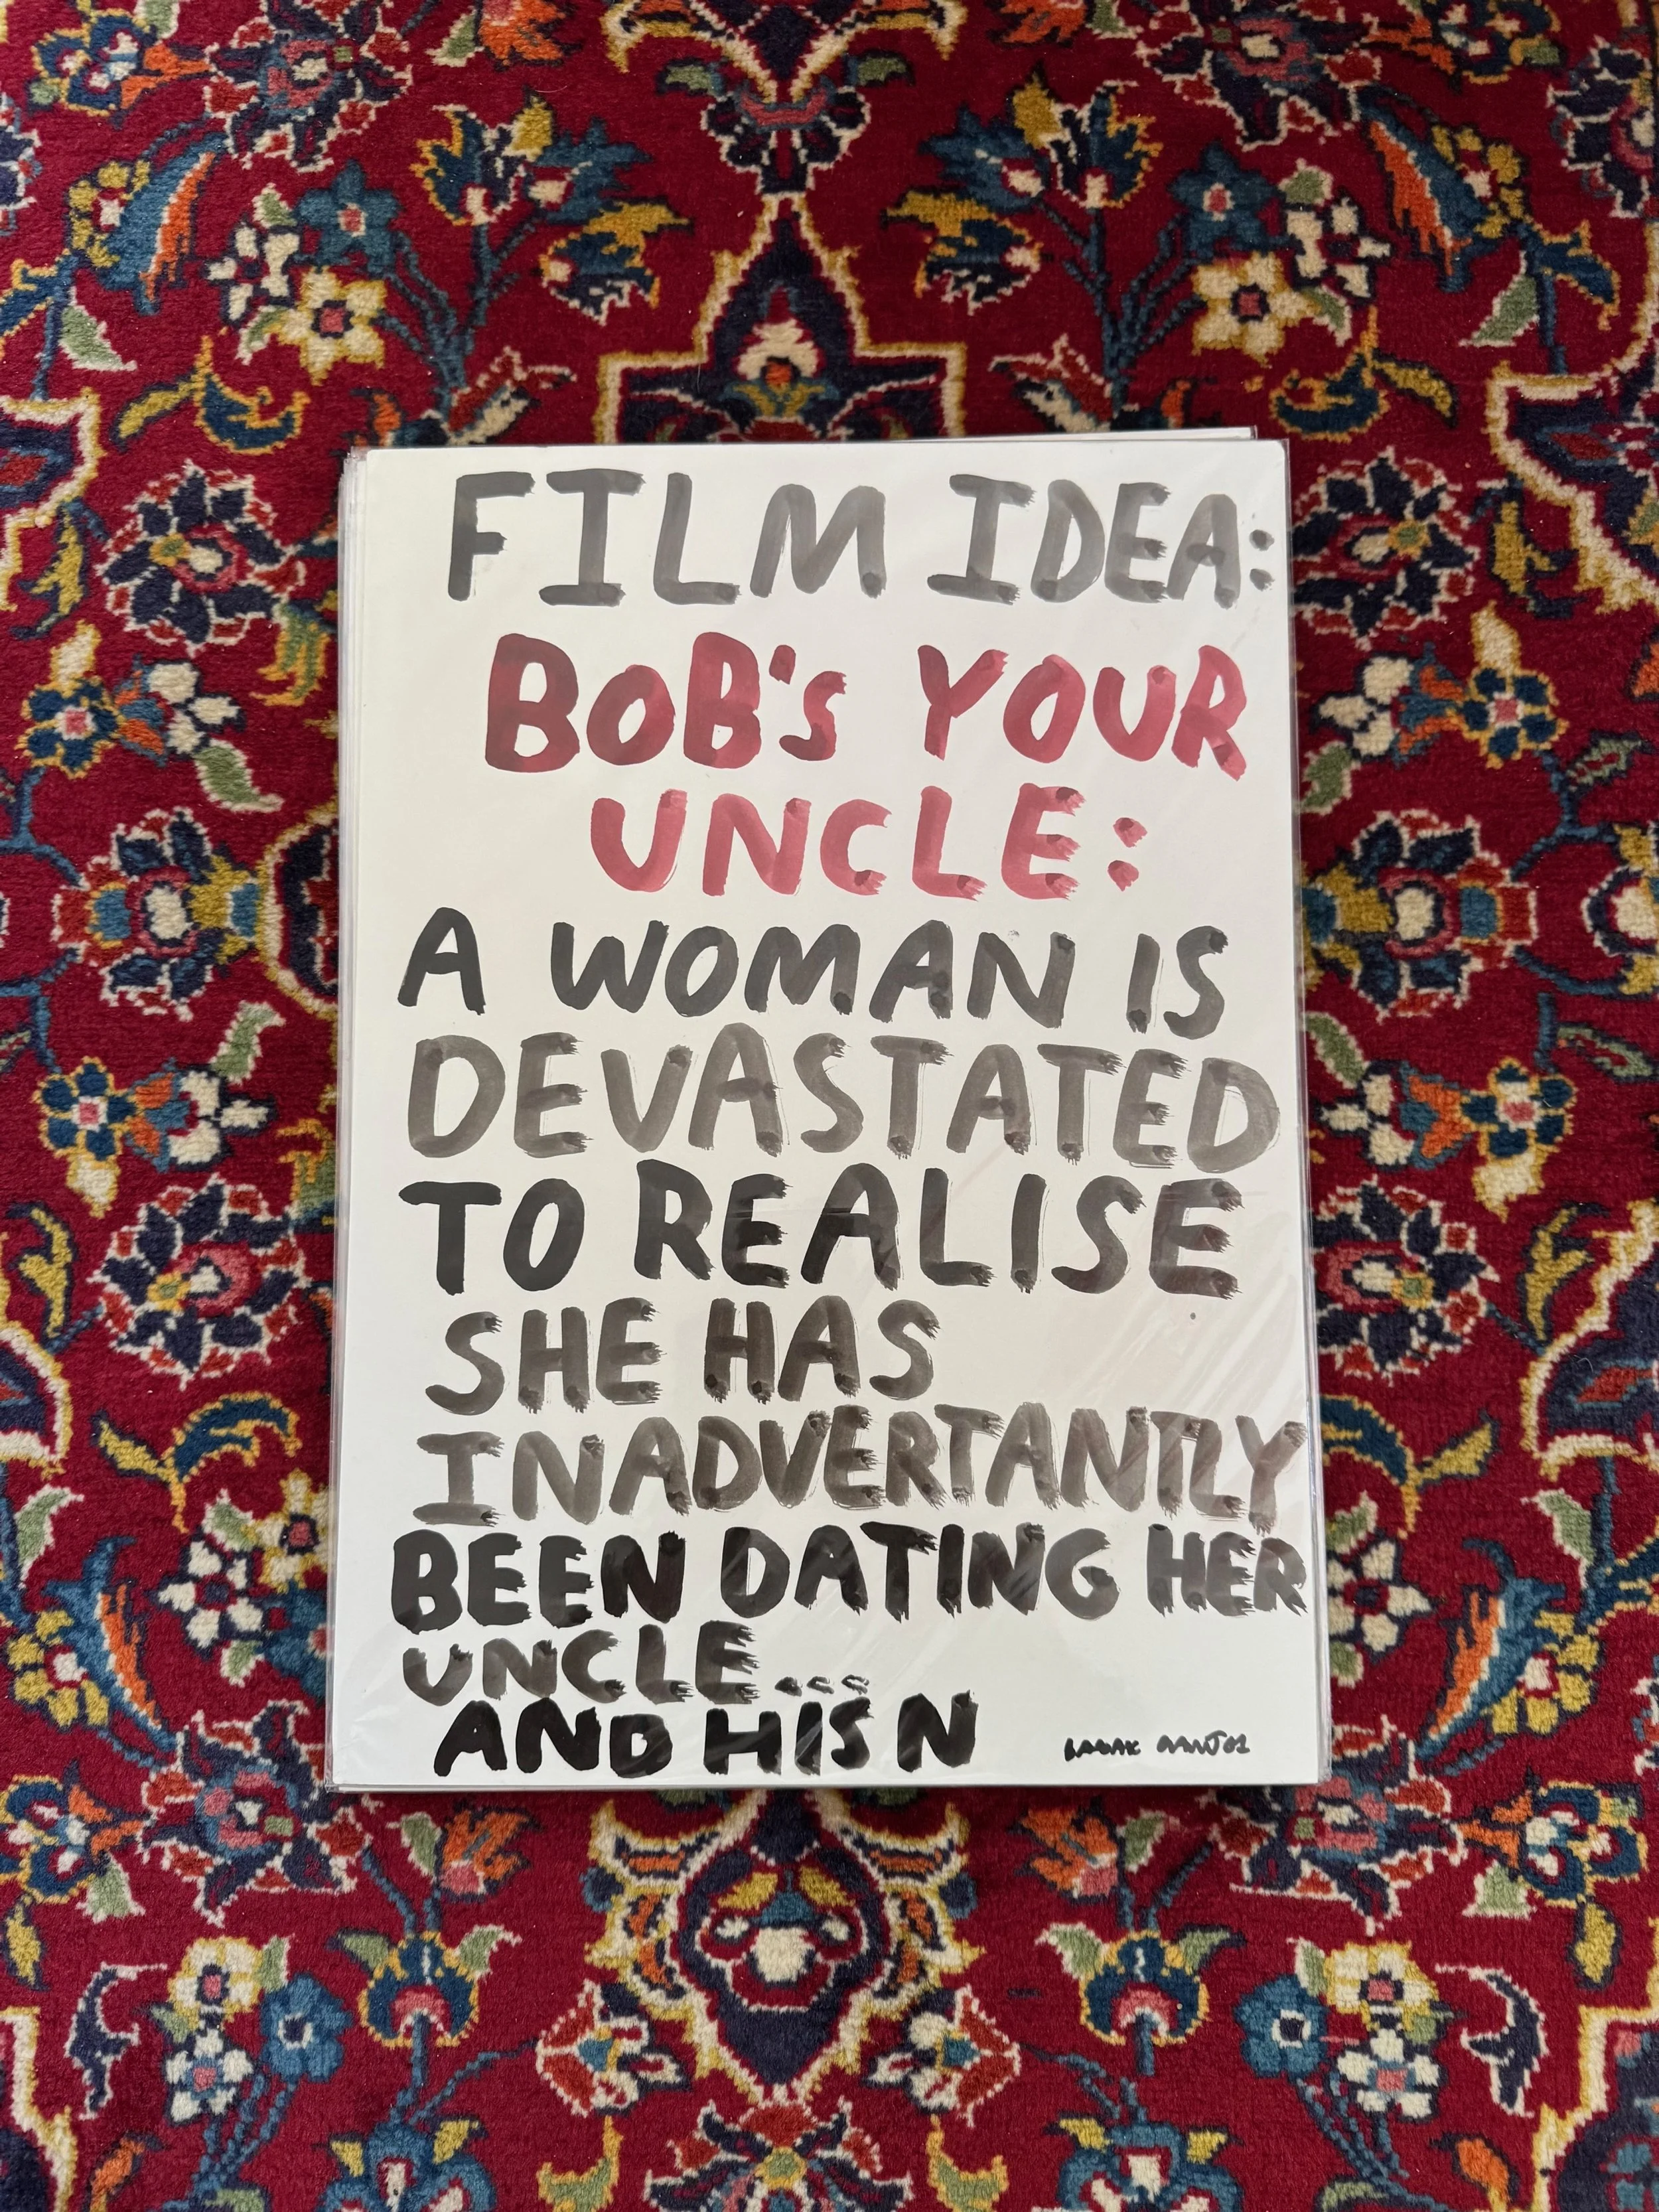 FILM IDEA:
BOB'S YOUR
UNCLE:
A WOMAN IS
DEVASTATED
TO REALISE
SHE HAS
INADVERTANTLY
BEEN DATING HER
UNCLE...
AND HIS N